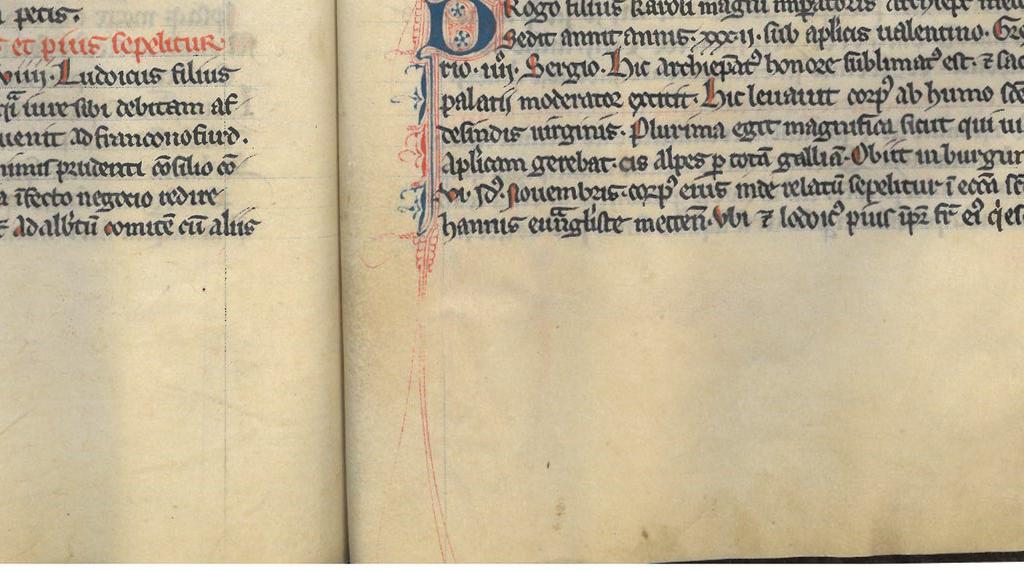 petis.
et pius sepelitur
viiij. Ludoicus filius
iure sibi debitam af
uenit ad franconofurd.
nimis prudenti cōsilio cō
a īfecto negocio redire
Ad albtū comitē cū aliis
DRogo filius karoli magni impatoris archiepc
Sedit annit annis. xxxii. sub aplicis ualentino. Gre
rio. iiij. Sergio. Hic archiepatꝰ honore sublimatꝰ est. ⁊ sac
palatii moderator extitit. Hic leuauit corpꝰ ab humo scē
desindis uirginis. Plurima egit magnifica sicut qui ui
Aplicam gerebat. cis alpes ꝑ totā galliā. Obiit in burgun
vi. Id. Nouembris. corpꝰ eius inde relatū sepelitur ī eccā sci
hannis euāgliste metteñ. Vbi ⁊ lodoicꝰ pius ipr fr eiꝰ